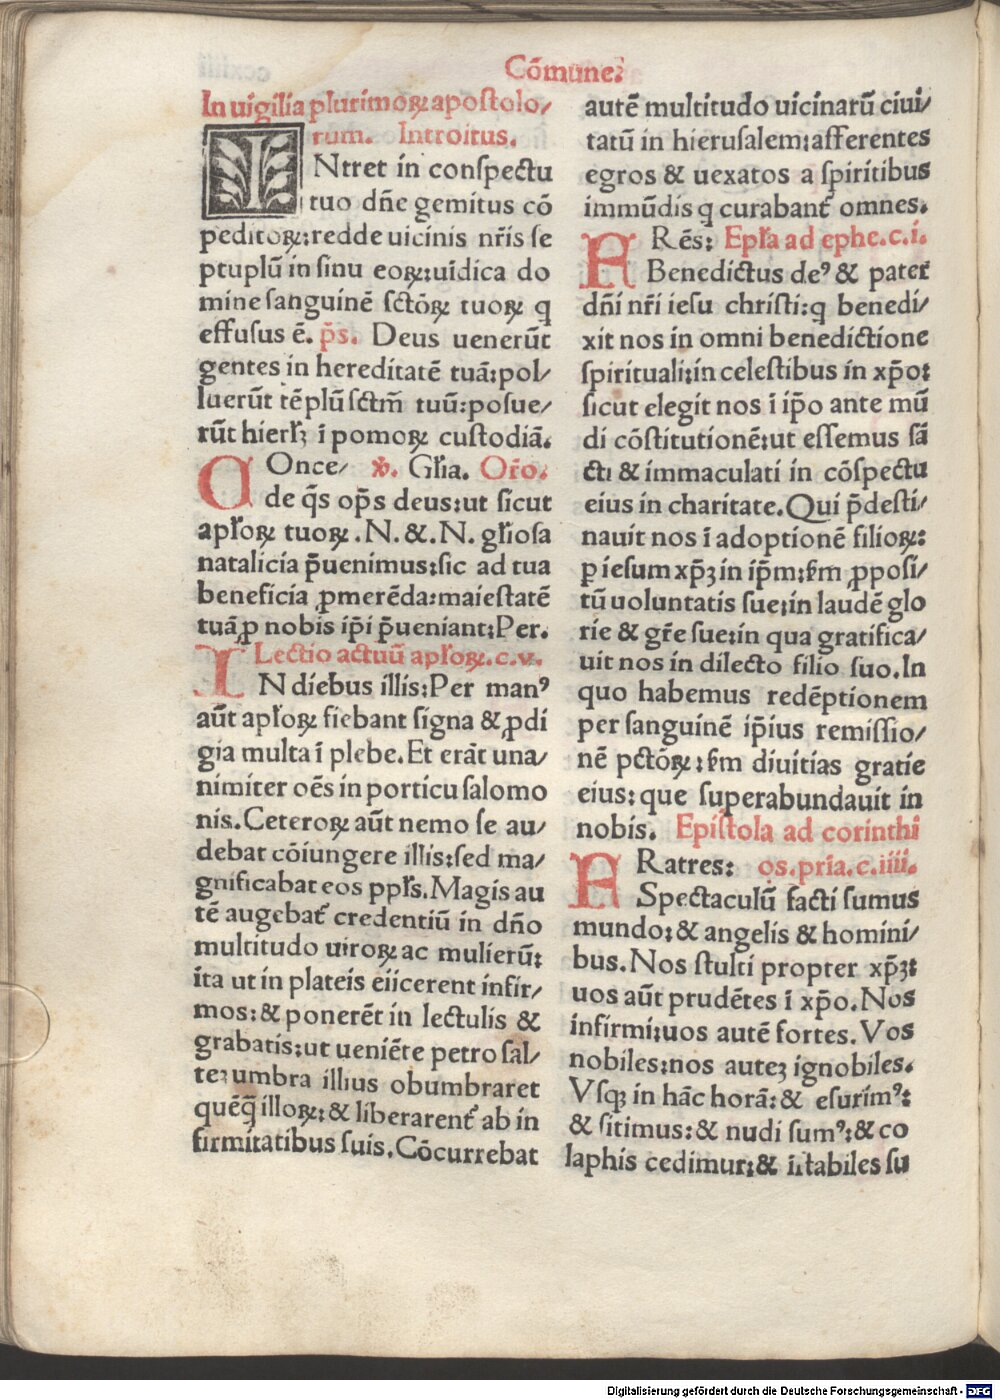 Cōmune.
In uigilia plurimoꝝ apostolo/
rum. Introitus.
INtret in conſpectu
tuo dn̄e gemitus cō
peditoꝝ: redde uicinis nr̄is ſe
ptuplū in ſinu eoꝝ: uīdica do
mine ſanguinē ſctōꝝ tuoꝝ q
effuſus ē. p̄s. Deus uenerūt
gentes in hereditatē tuā: pol/
luerūt tēplū ſctm̄ tuū: poſue/
rūt hierlꝫ ī pomoꝝ cuſtodiā.
COnce/ ꝟ. Gɫia. Or̄o.
de q̄s op̄s deus: ut ſicut
apɫoꝝ tuoꝝ .N. &. N. gɫioſa
natalicia p̄uenimus: ſic ad tua
beneficia ꝓmerēda: maieſtatē
tuā ꝓ nobis ip̄i p̄ueniant: Per.
Lectio actuū apɫoꝝ. c. v.
IN diebus illis: Per manꝰ
aūt apɫoꝝ fiebant ſigna & ꝓdi
gia multa ī plebe. Et erāt una/
nimiter oēs in porticu ſalomo
nis. Ceteroꝝ aūt nemo ſe au/
debat cōiungere illis: ſed ma/
gnificabat eos ppɫs. Magis au
tē augebat᷑ credentiū in dn̄o
multitudo uiroꝝ ac mulierū:
ita ut in plateis eiicerent infir/
mos: & ponerēt in lectulis &
grabatis: ut ueniēte petro ſal/
teꝫ umbra illius obumbraret
quēq̄ illoꝝ: & liberarent᷑ ab in
firmitatibus ſuis. Cōcurrebat
autē multitudo uicinarū ciui/
tatū in hieruſalem: afferentes
egros & uexatos a ſpiritibus
immūdis q curabant᷑ omnes.
FRēs: Epɫa ad ephe. c. i.
Benedictus deꝰ & pater
dn̄i nr̄i ieſu chriſti: q benedi/
xit nos in omni benedictione
ſpirituali: in celeſtibus in xp̄o:
ſicut elegit nos ī ip̄o ante mū
di cōſtitutionē: ut eſſemus ſā
cti & immaculati in cōſpectu
eius in charitate. Qui p̄deſti/
nauit nos ī adoptionē filioꝝ:
ꝑ ieſum xp̄ꝫ in ip̄m: ẜm ꝓpoſi/
tū uoluntatis ſue: in laudē glo
rie & gr̄e ſue: in qua gratifica/
uit nos in dilecto filio ſuo. In
quo habemus redēptionem
per ſanguinē ip̄ius remiſſio/
nē pctōꝝ: ẜm diuitias gratie
eius: que ſuperabundauit in
nobis. Epiſtola ad corinthi
FRatres: os. pria. c. iiii.
Spectaculū facti ſumus
mundo: & angelis & homini/
bus. Nos ſtulti propter xp̄ꝫ:
uos aūt prudētes ī xp̄o. Nos
infirmi: uos autē fortes. Vos
nobiles: nos auteꝫ ignobiles.
Vſqꝫ in hāc horā: & eſurimꝰ:
& ſitimus: & nudi ſumꝰ: & co
laphis cedimur: & īſtabiles ſu
Digitalisierung gefördert durch die Deutsche Forschungsgemeinschaft - DFG